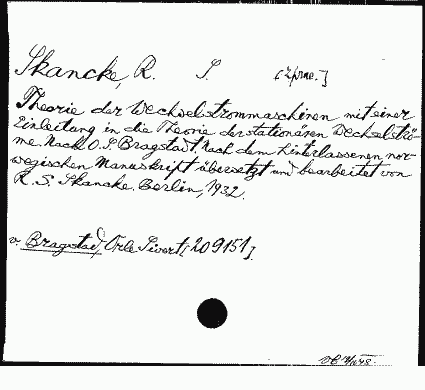 Skancke, R. S. [Zprac.]
Theorie der Wechselstrommaschinen mit einer
Einleitung in die Theorie der stationären Wechselströ-
me. Nach O. S. Bragstad. Nach dem hinterlassenen nor-
wegischen Manuskript übersetzt und bearbeitet von
R. S. Skancke. Berlin, 1932.
v. Bragstad, Ole Sivert [209151].